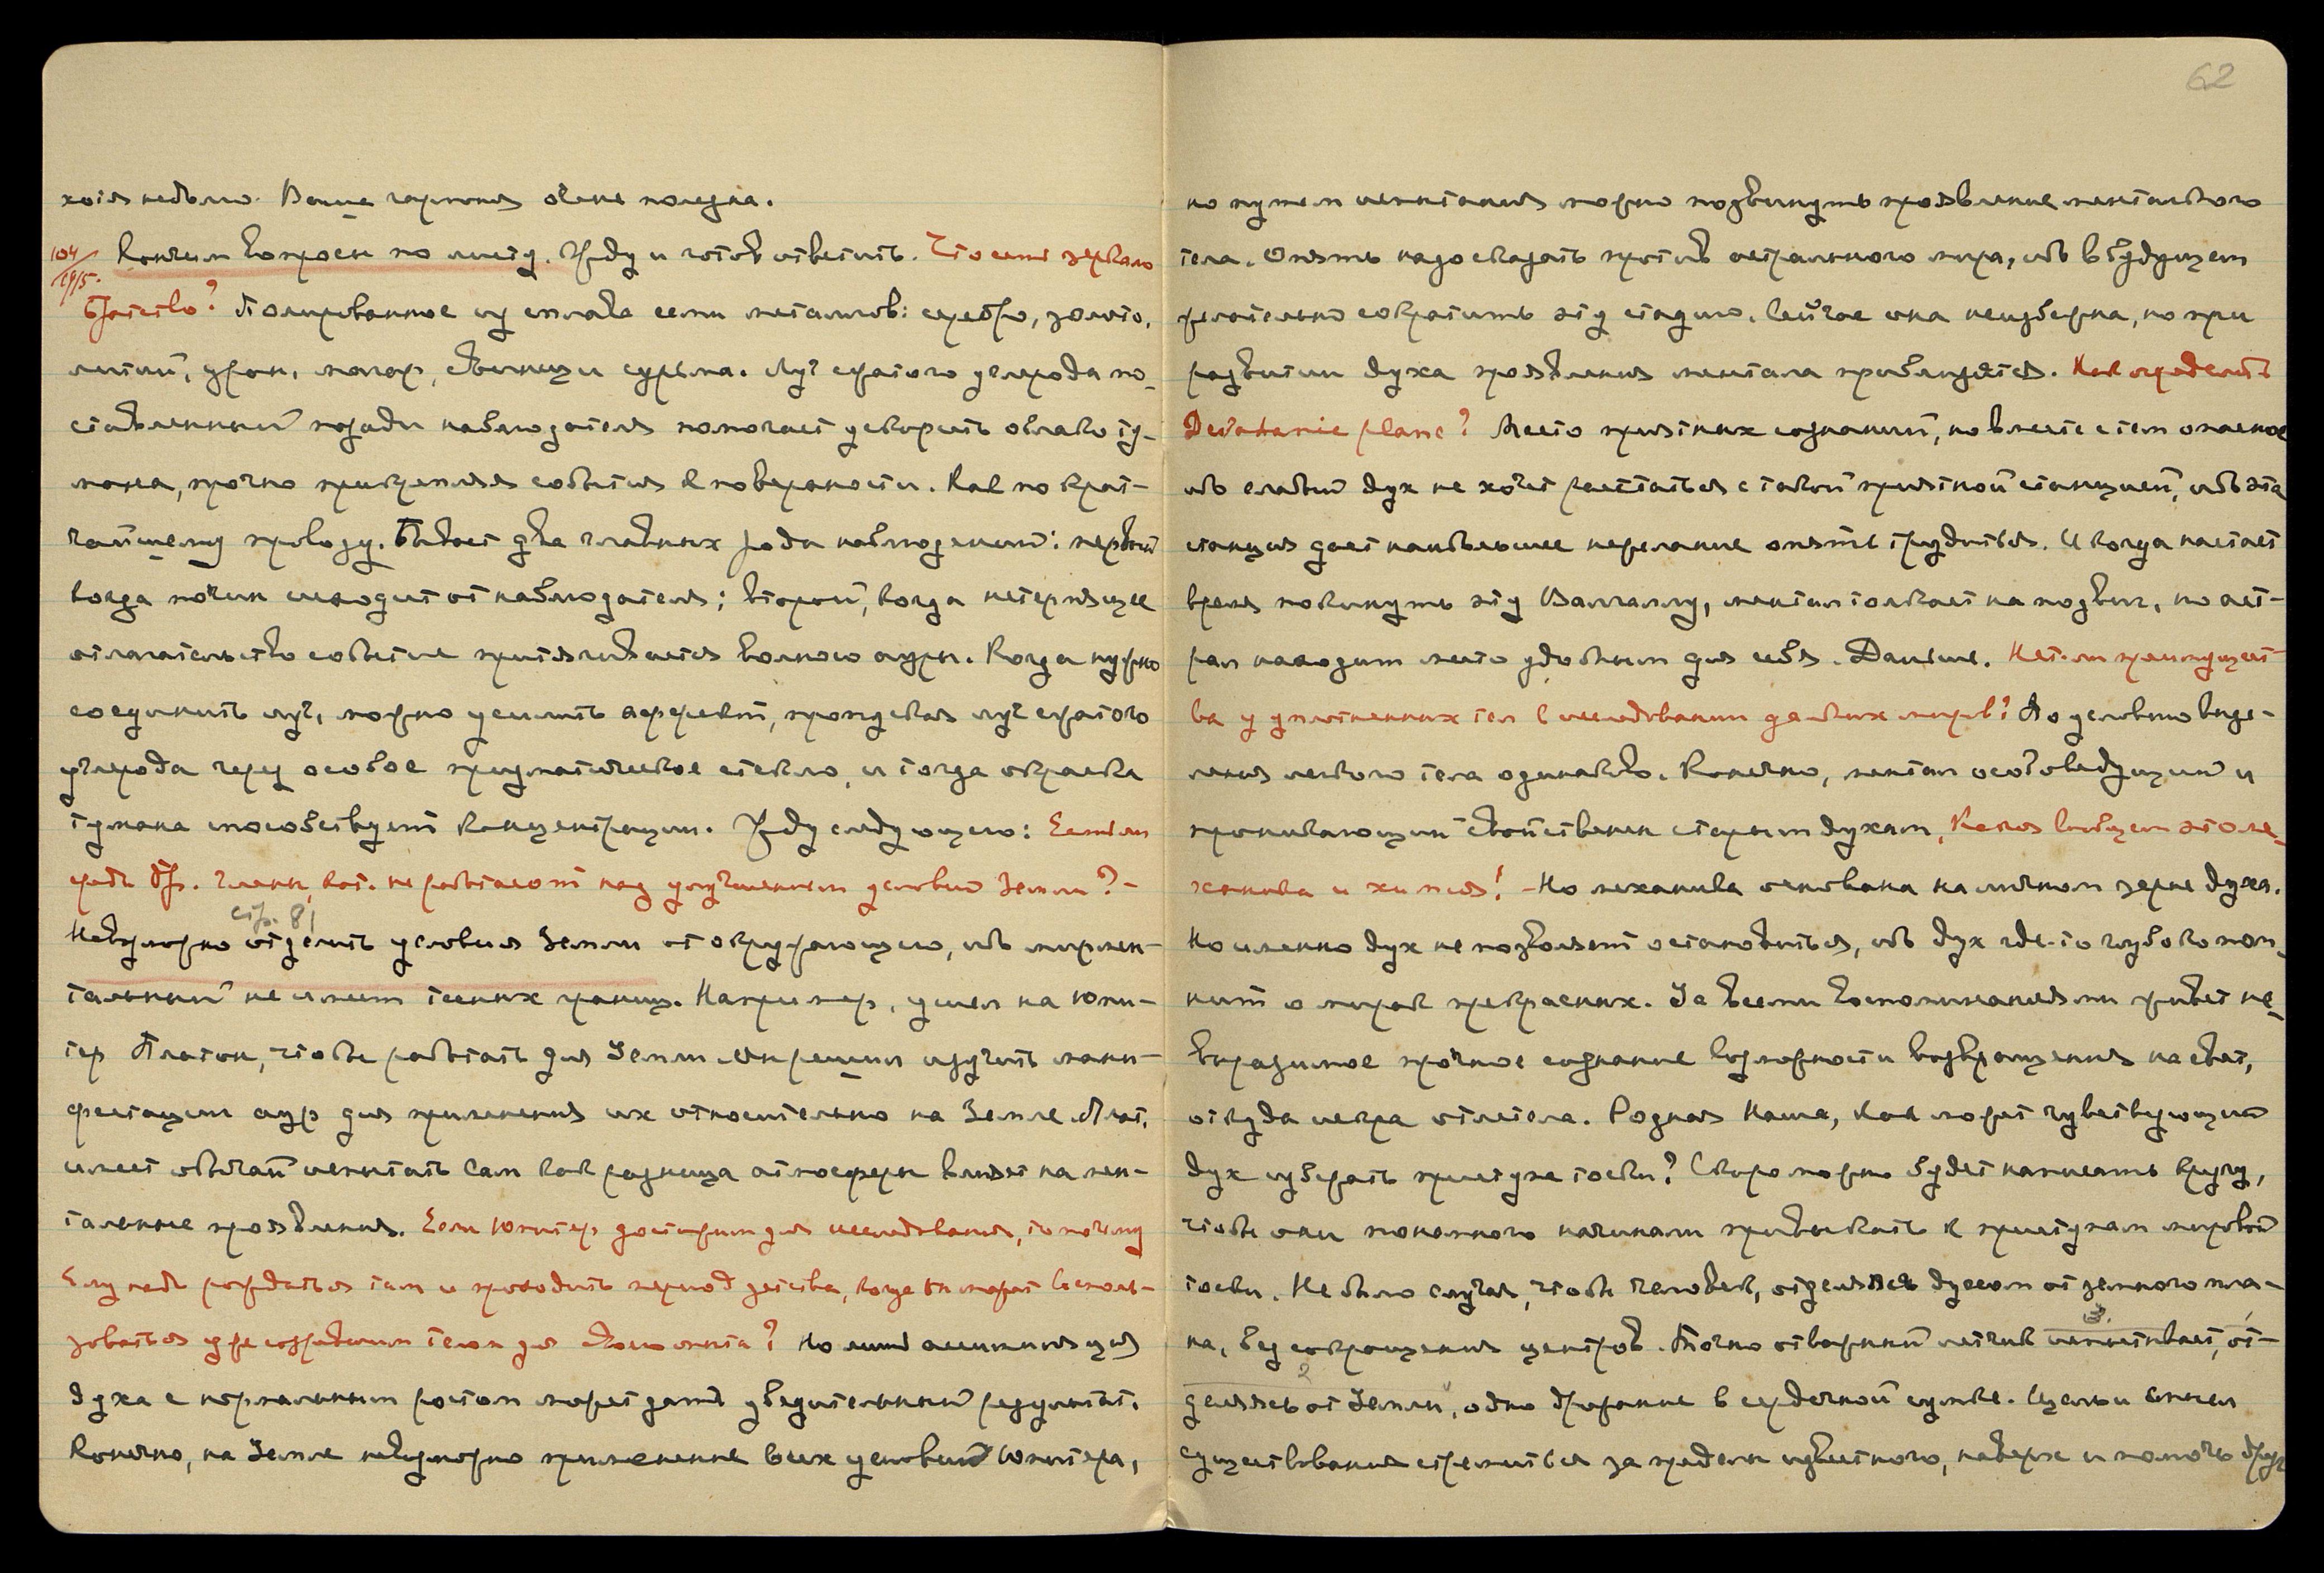 хотя небыло. Ваша гармония очень полезна.
104/19/5. Кончим вопросы по листу. Жду и готов ответить. Что есть зеркало
Братства? Полированное из сплава семи металлов: серебро, золото,
литий, уран, магор, свинец и сурьма. Луч сжатого углерода по-
ставленный позади наблюдателя помогает ускорить облако ту-
мана, прочно прикрепляя события к поверхности. Как по крат-
чайшему проводу. Бывает два главных рода наблюдений: первый
когда почин исходит от наблюдателя; второй, когда нетерпящее
отлагательство событие притягивается волною ауры. Когда нужно
соединить луч, можно усилить эффект, пропуская луч сжатого
углерода через особое призматическое стекло, и тогда окраска
тумана способствует концентрации. Жду следующего: Есть ли
среди Бр. члены, кот. не работают над улучшением условий Земли? -
стр. 81
Невозможно отделить условия Земли от окружающего, ибо мир мен-
тальный не имеет тесных границ. Например, ушел на Юпи-
тер Платон, чтобы работать для Земли решил изучить мани-
фестации аур для применения их относительно на Земле. Плат.
имеет обычай испытать сам как разница атмосферы влияет на мен-
тальные проявления. Если Юпитер достижим для исследования, то почему
Ему надо рождаться там и проходить период детства, когда Он может восполь-
зоваться уже созданным телом для ? Но лишь ассимиляция
духа с нормальным ростом может дать убедительный результат.
Конечно, на Земле невозможно применение всех условий Юпитера,
62
но путем испытания можно подвинуть проявление ментального
тела. Опять надо сказать против астрального мира, ибо в будущем
желательно сократить эту стадию. Сейчас она неизбежна, но при
развитии духа проявления ментала приблизятся. Как определить
Devahanic plane? Место приятных сознаний, но вместе с тем опасное
ибо слабый дух не хочет расстаться с такой приятной станцией, ибо эта
станция дает наибольшее нежелание опять трудиться. И когда настает
время покинуть эту Валгаллу, ментал толкает на подвиг, но аст-
рал находит место удобным для себя. Дальше. Нет ли преимущест-
ва у уплотненных тел в исследовании дальних миров? По условию выде-
ления легкого тела одинаково. Конечно, ментал особоведущий и
проникающий свойственен старым духам, Какая вообщем это ме-
ханика и химия! - Но механика основана на личном зерне духа.
Но именно дух не позволяет остановиться, ибо дух где-то глубоко пом-
нит о мирах прекрасных. За всеми воспоминаниями живет не-
выразимое прочное сознание возможности возвращения на свет,
откуда искра отлетела. Родная Наша, как может чувствующий
дух избежать приступа тоски? Скоро можно будет написать кругу,
чтобы они понемногу начинали привыкать к приступам мировой
тоски. Не было случая, чтобы человек, отделяясь духом от земного пла-
3.
на, без сокращения центров. Точно отважный летчик испытывает, от-
2
деляясь от Земли, одно дрожание в сердечной сумке. Цель и смысл
существования стремиться за пределы известного, наверх и помочь друг